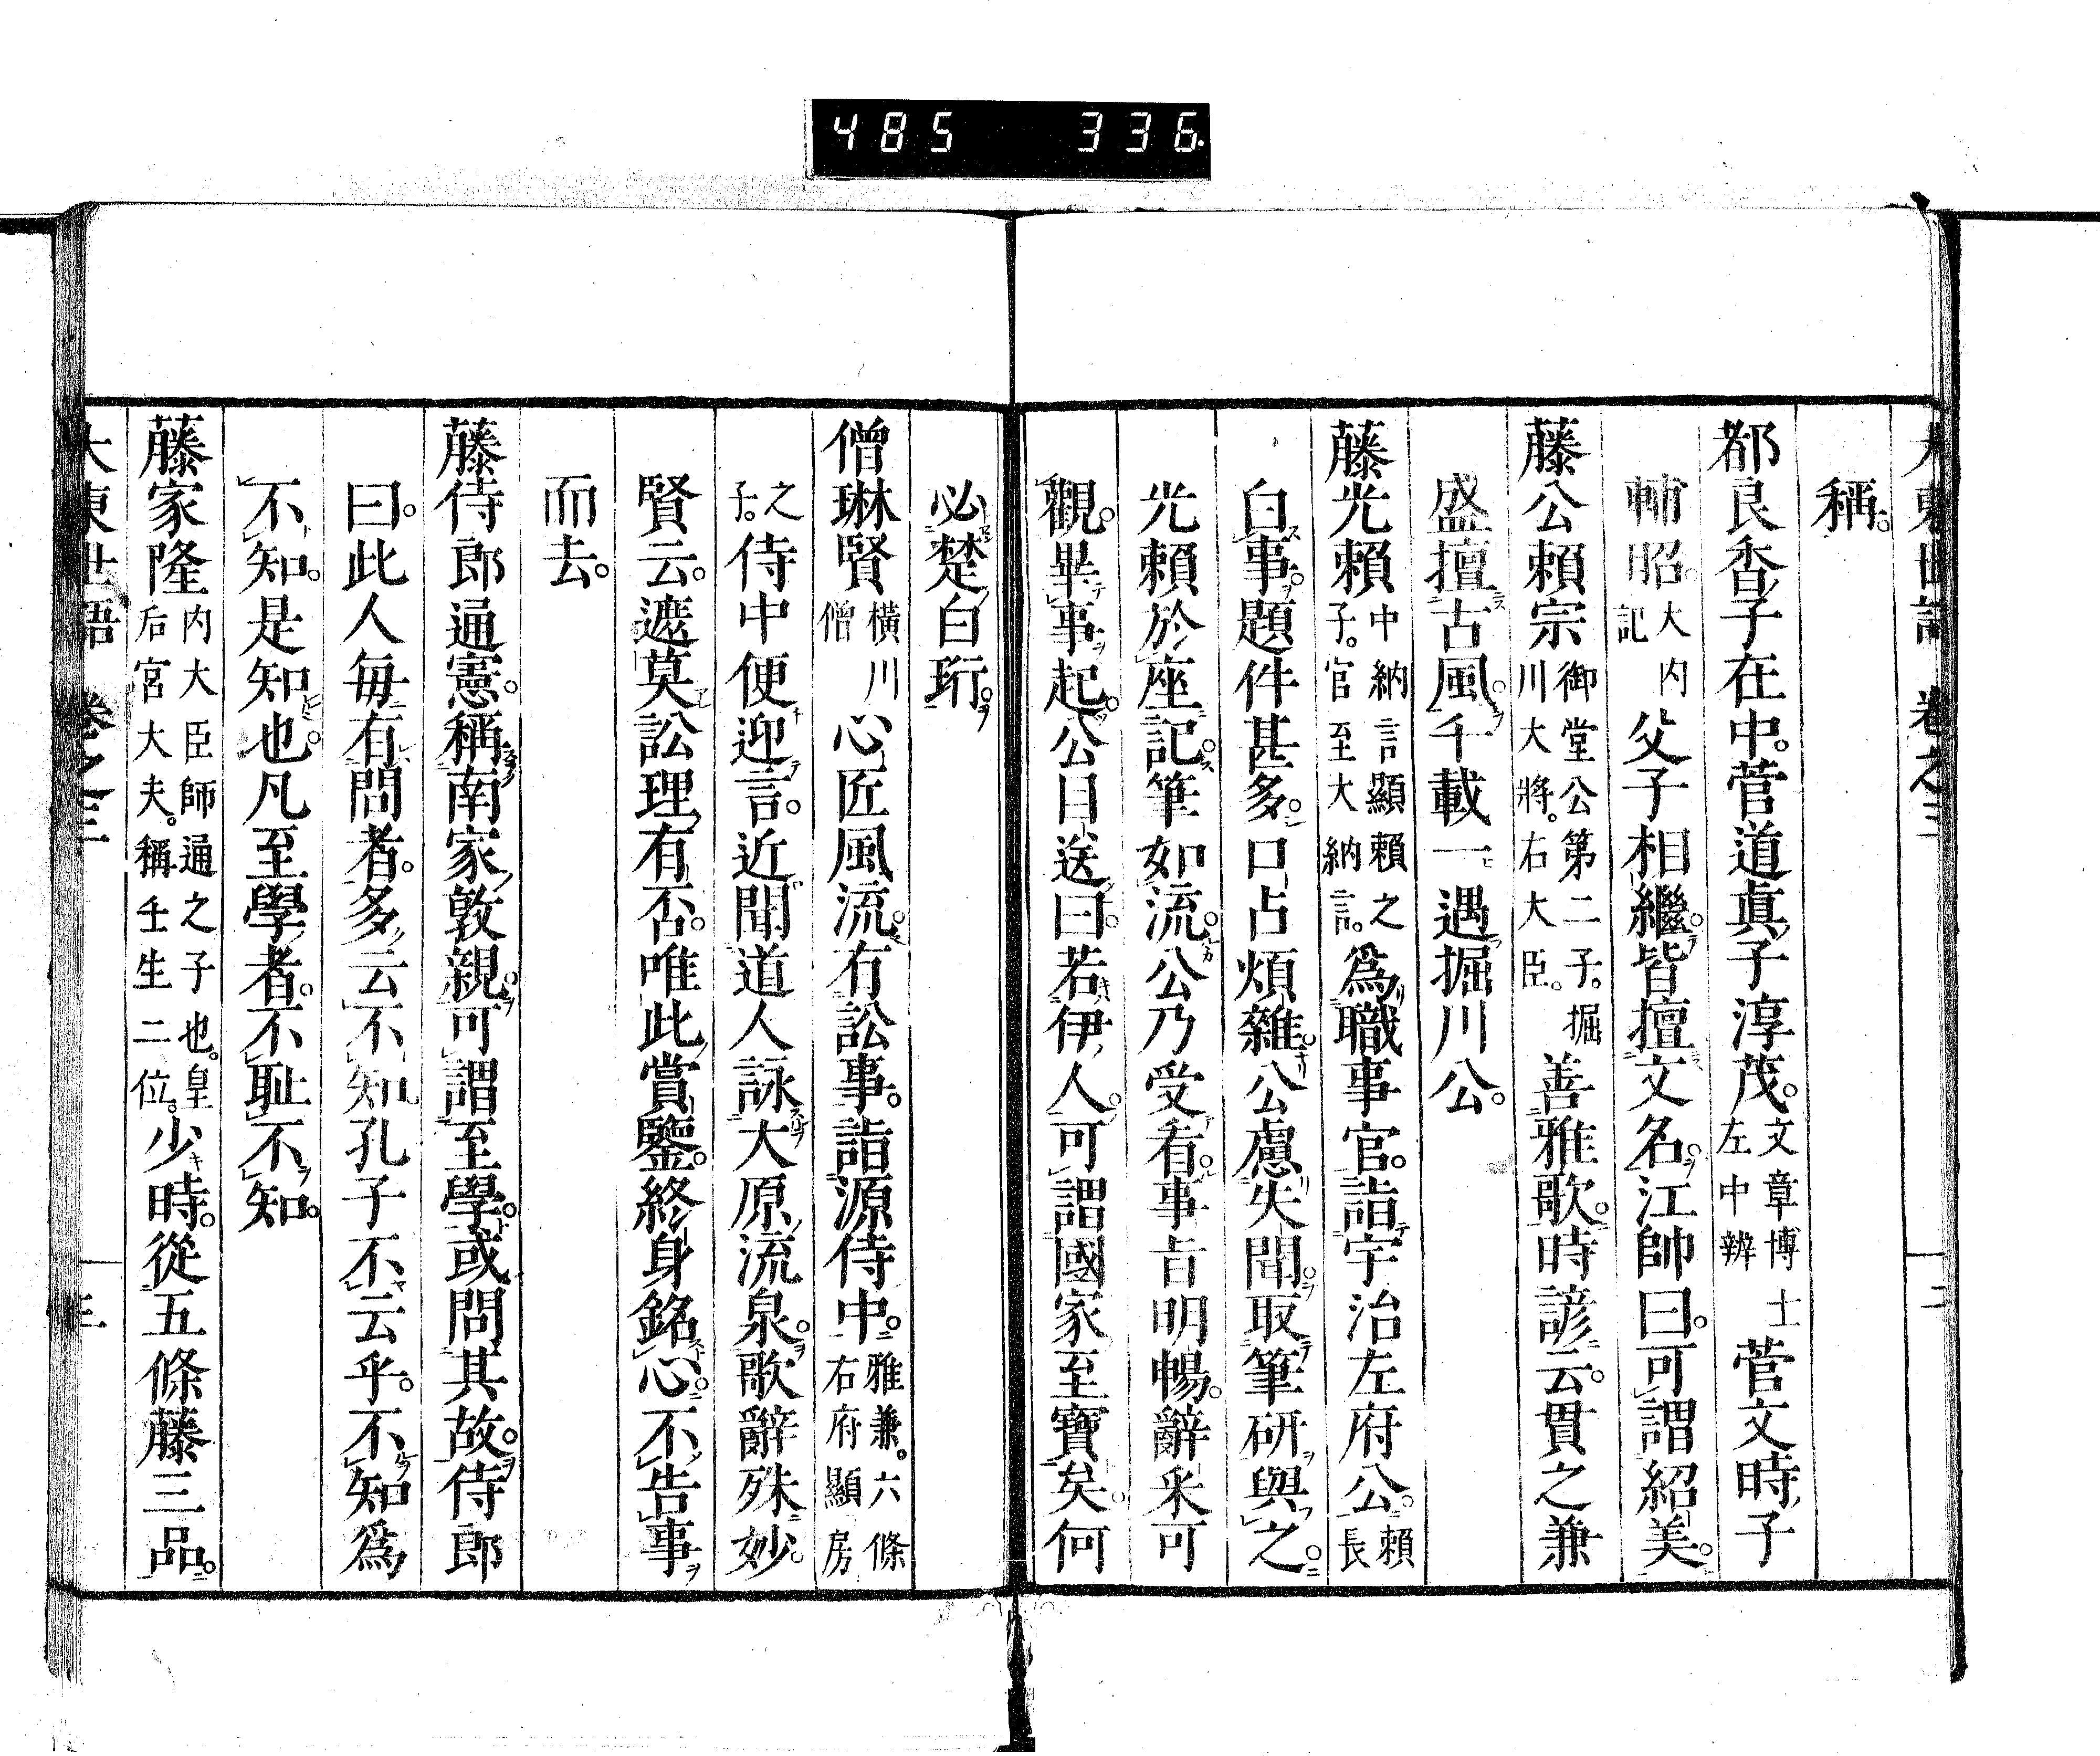 485 336
大東世語 卷之三 二
稱。
都良香子在中。菅道眞子淳茂。文章博士左中辨菅文時子
輔昭大内記父子相繼。皆擅文名。江帥曰。可謂紹美。
藤公賴宗御堂公第二子。掘川大將。右大臣。善雅歌。時諺云。貫之兼
盛擅古風。千載一遇掘川公。
藤光賴中納言顯賴之子。官至大納言。爲職事官。詣宇治左府公。賴長
白事。題件甚多。口占煩雜。公慮失聞。取筆硏與之。
光賴於座記。筆如流。公乃受看。事旨明暢。辭采可
觀。畢事起。公目送曰。若伊人。可謂國家至寶矣。何
必楚白珩。
僧琳賢橫川僧心匠風流。有訟事。詣源侍中。雅兼。六條右府顯房
之子。侍中便迎言。近聞道人詠大原流泉。歌辭殊妙。
賢云。遮莫訟理有否。唯此賞鑒。終身銘心。不告事
而去。
藤侍郎通憲。稱南家敦親。可謂至學。或問其故。侍郎
曰。此人每有問者。多云不知。孔子不云乎。不知爲
不知。是知也。凡至學者。不耻不知。
藤家隆内大臣師通之子也。皇后宮大夫。稱壬生二位。少時。從五條藤三品。
大東世語 卷之三 三